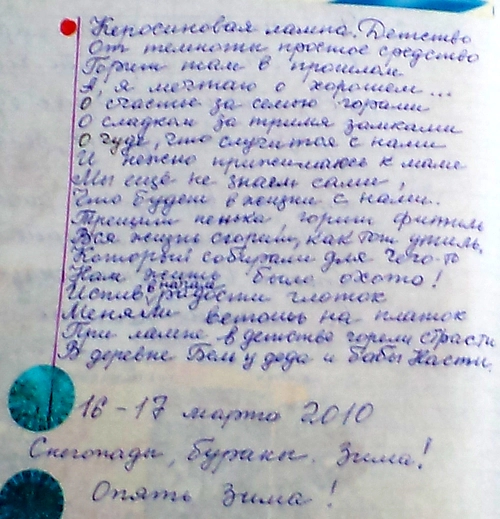 Керосиновая лампа. Детство
От темноты простое средство
Горит там в прошлом
А, я мечтаю о хорошем...
О счастье за семью горами
О сладком за тремя замками
О чуде, что случится с нами
И нежно прижимаюсь к маме
Мы ещё не знаем сами,
Что будет в жизни с нами..
Трещит пенька горит фитиль
Вся жизнь сгорит, как тот утиль,
Который собирали для чего-то
Нам жить было охота!
Испив в радости глоток
Меняли ветошь на платок
При лампе в детстве горели страсти
В деревне Бель у деда и бабы Насти.
16-17 марта 2010
Снегопады, бураны. Зима!
Опять Зима!